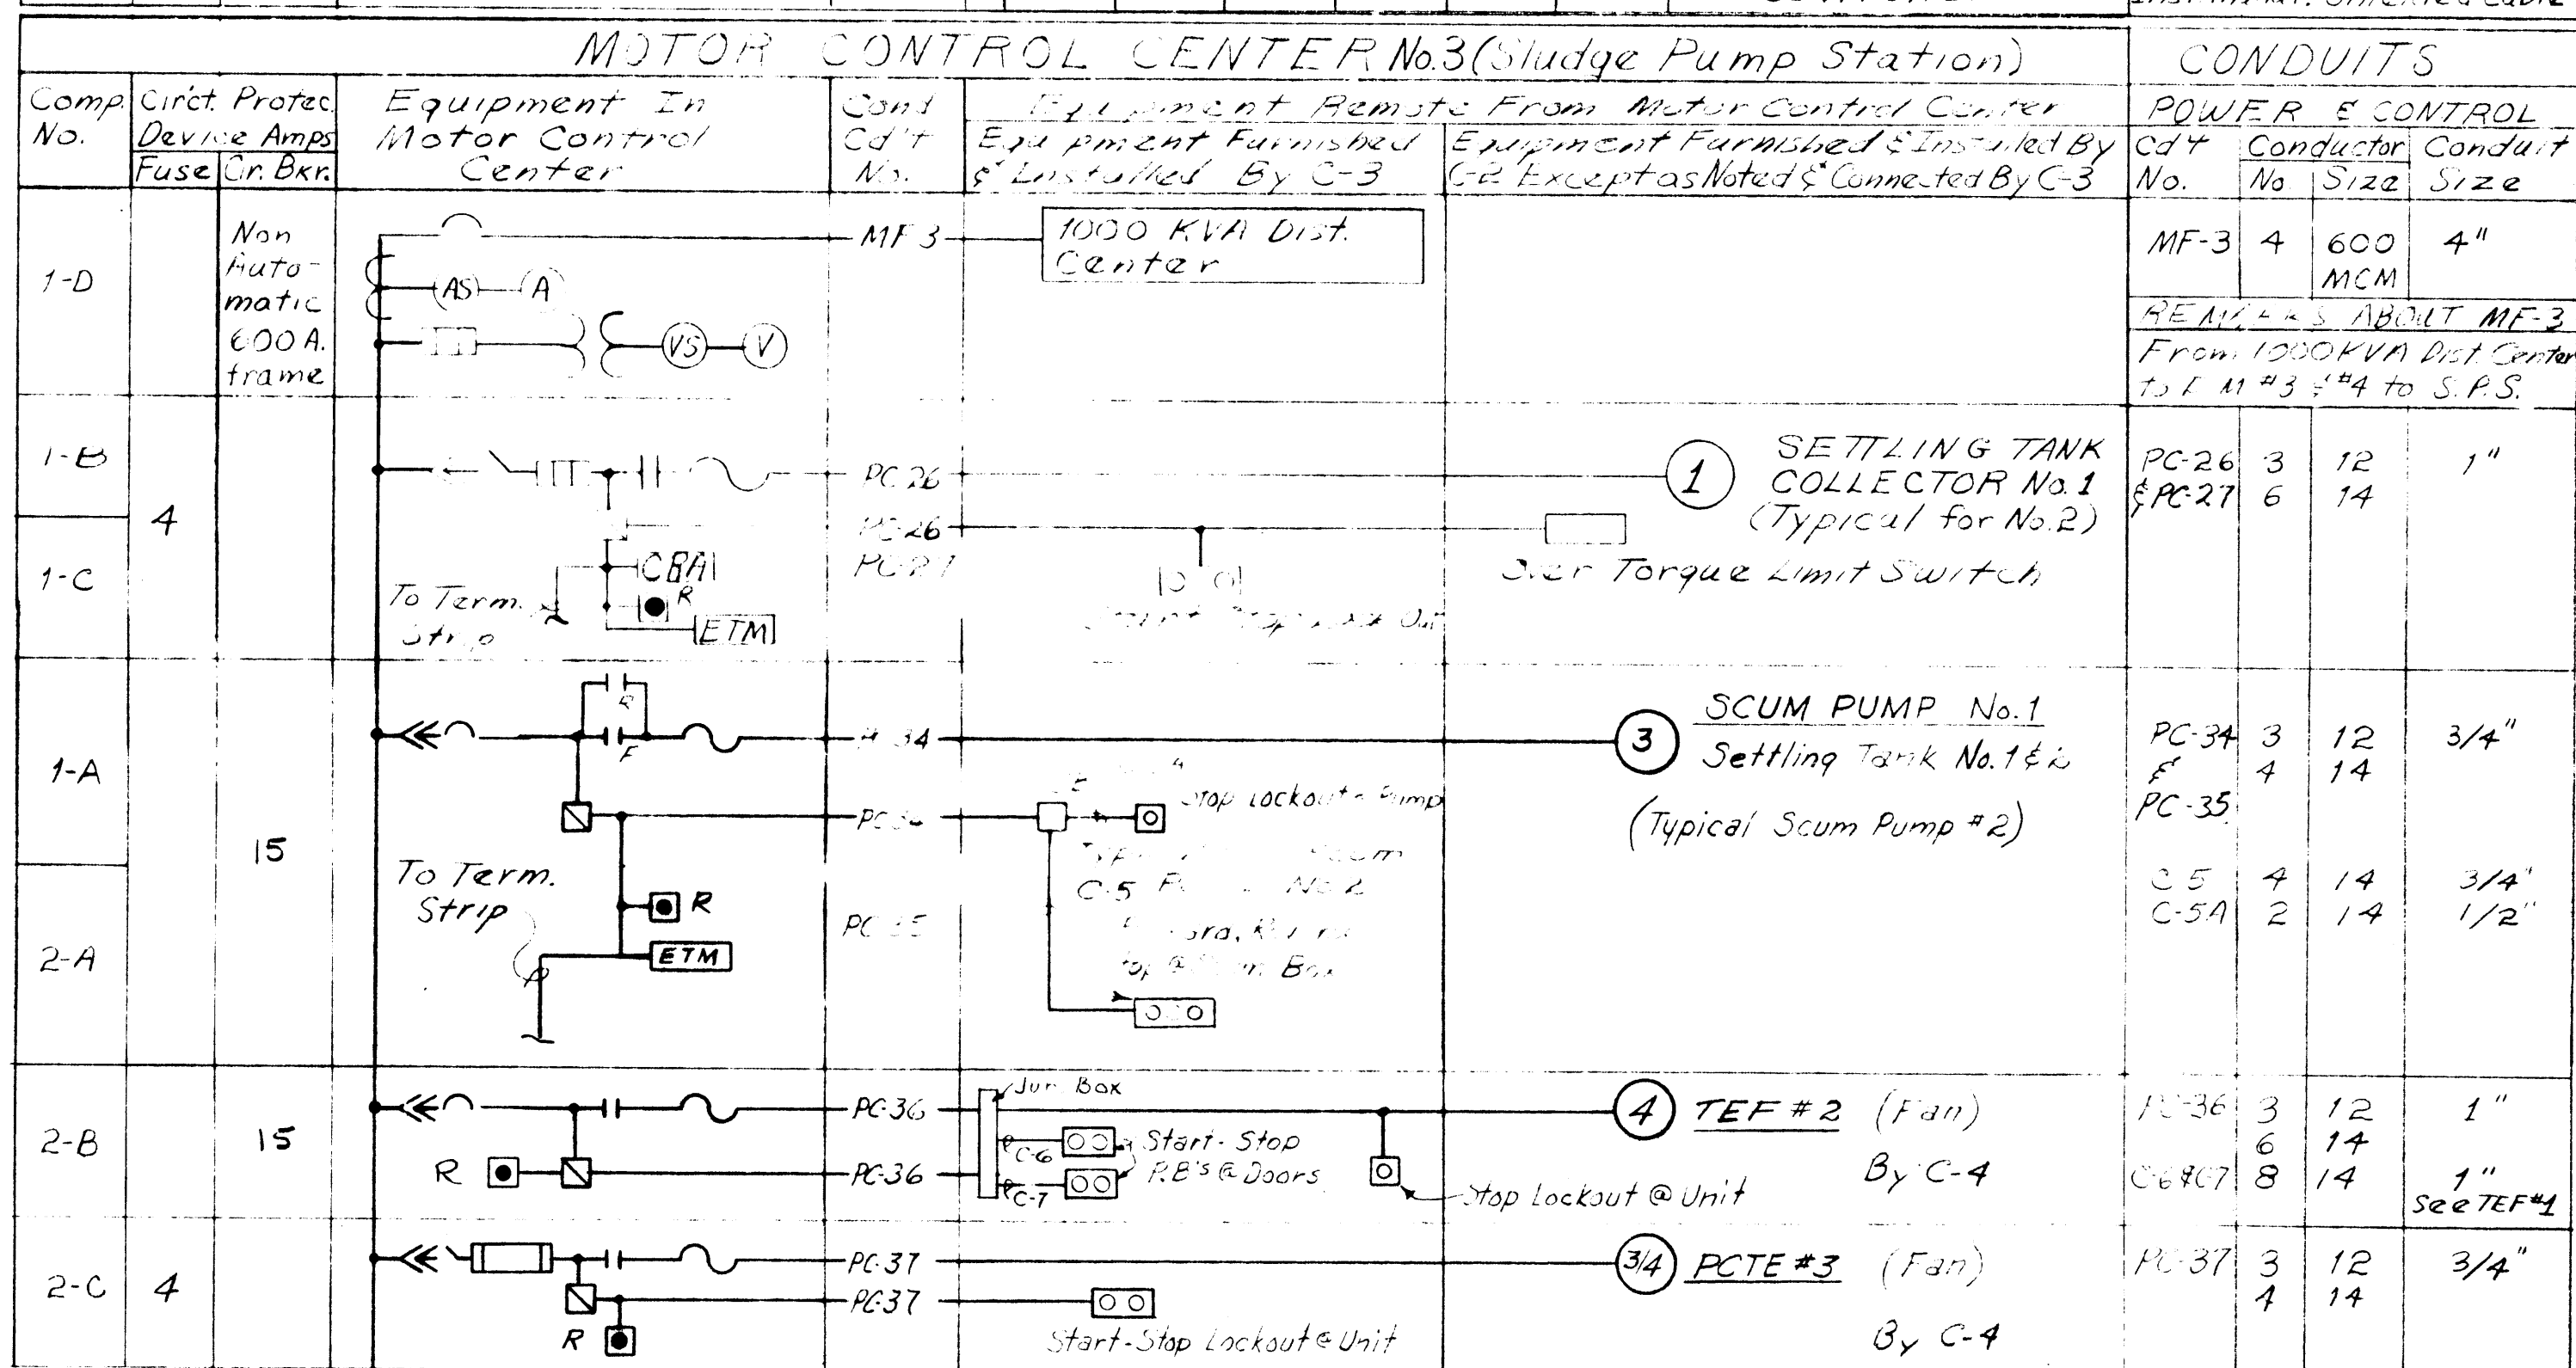 MOTOR CONTROL CENTER No.3 (Sludge Pump Station)
CONDUITS
Comp. No.
Circt. Protec. Device Amps
Fuse
Cir. Bkr.
Equipment In Motor Control Center
Cond Cd't No.
Equipment Remote From Motor Control Center
Equipment Furnished & Installed By C-3
Equipment Furnished & Installed By C-2 Except as Noted & Connected By C-3
POWER & CONTROL
Cd't No.
Conductor
No.
Size
Conduit Size
1-D
Non Auto-matic 600 A. frame
AS
A
VS
V
MF 3
1000 KVA Dist. Center
MF-3 4 600 MCM 4"
REMARKS ABOUT MF-3
From 1000 KVA Dist. Center
to #3 & #4 to S.P.S.
1-B
1-C
4
PC 26
PC-26
PC-27
CBA
R
ETM
To Term. Strip
1
SETTLING TANK
COLLECTOR No. 1
(Typical for No. 2)
Over Torque Limit Switch
Out
PC-26 3 12 1"
& PC-27 6 14
1-A
2-A
15
R
F
34
To Term.
Strip
R
ETM
Stop Lockout Pump
C-5 No 2
Box
3
SCUM PUMP No. 1
Settling Tank No. 1 &
(Typical Scum Pump #2)
PC-34 3 12 3/4"
& 4 14
PC-35
C 5 4 14 3/4"
C-5A 2 14 1/2"
2-B
15
R
PC-36
PC-36
Jun Box
C-6
C-7
Start-Stop
P.B's @ Doors
Stop Lockout @ Unit
4
TEF #2 (Fan)
By C-4
PC-36 3 12 1"
6 14
C-6 & C7 8 14 1"
See TEF #1
2-C
4
R
PC-37
PC-37
Start-Stop Lockout @ Unit
3/4
PCTE #3 (Fan)
By C-4
PC-37 3 12 3/4"
4 14